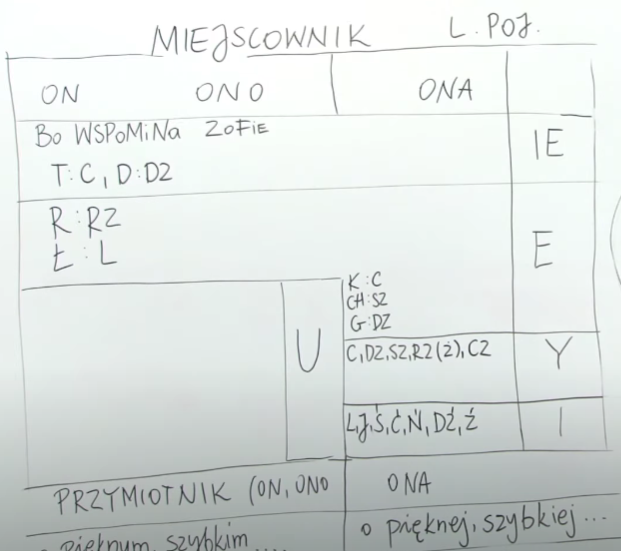 MIEJSCOWNIK L. POJ.
ON ONO ONA
BO WSPOMINA ZOFIE
T:C, D:DZ
IE
R:RZ
Ł:L
E
K:C
CH:SZ
G:DZ
U
C,DZ,SZ,RZ(Ż),CZ Y
L,J,Ś,Ć,Ń,DŹ,Ź I
PRZYMIOTNIK (ON, ONO ONA
o pięknym, szybkim .... o pięknej, szybkiej ...